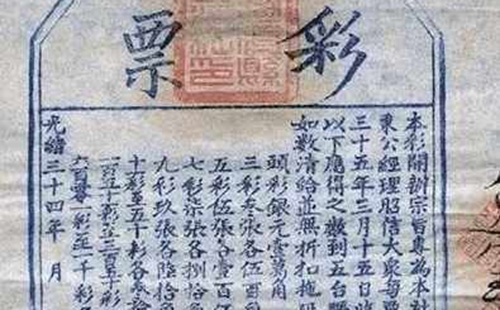 彩票
本彩開辦宗旨專為本社
東公經理昭信大衆每票
三十五年三月十五日
以下應得之數到五台
如數清給並無折扣拖
頭彩銀元壹萬角
三彩叁張各伍百角
五彩伍張各壹百伍
七彩柒張各捌拾角
九彩玖張各陸拾角
十彩至五十彩各叁拾
十彩至三百五十彩
六百零一彩至一千彩
光緒三十四年 月